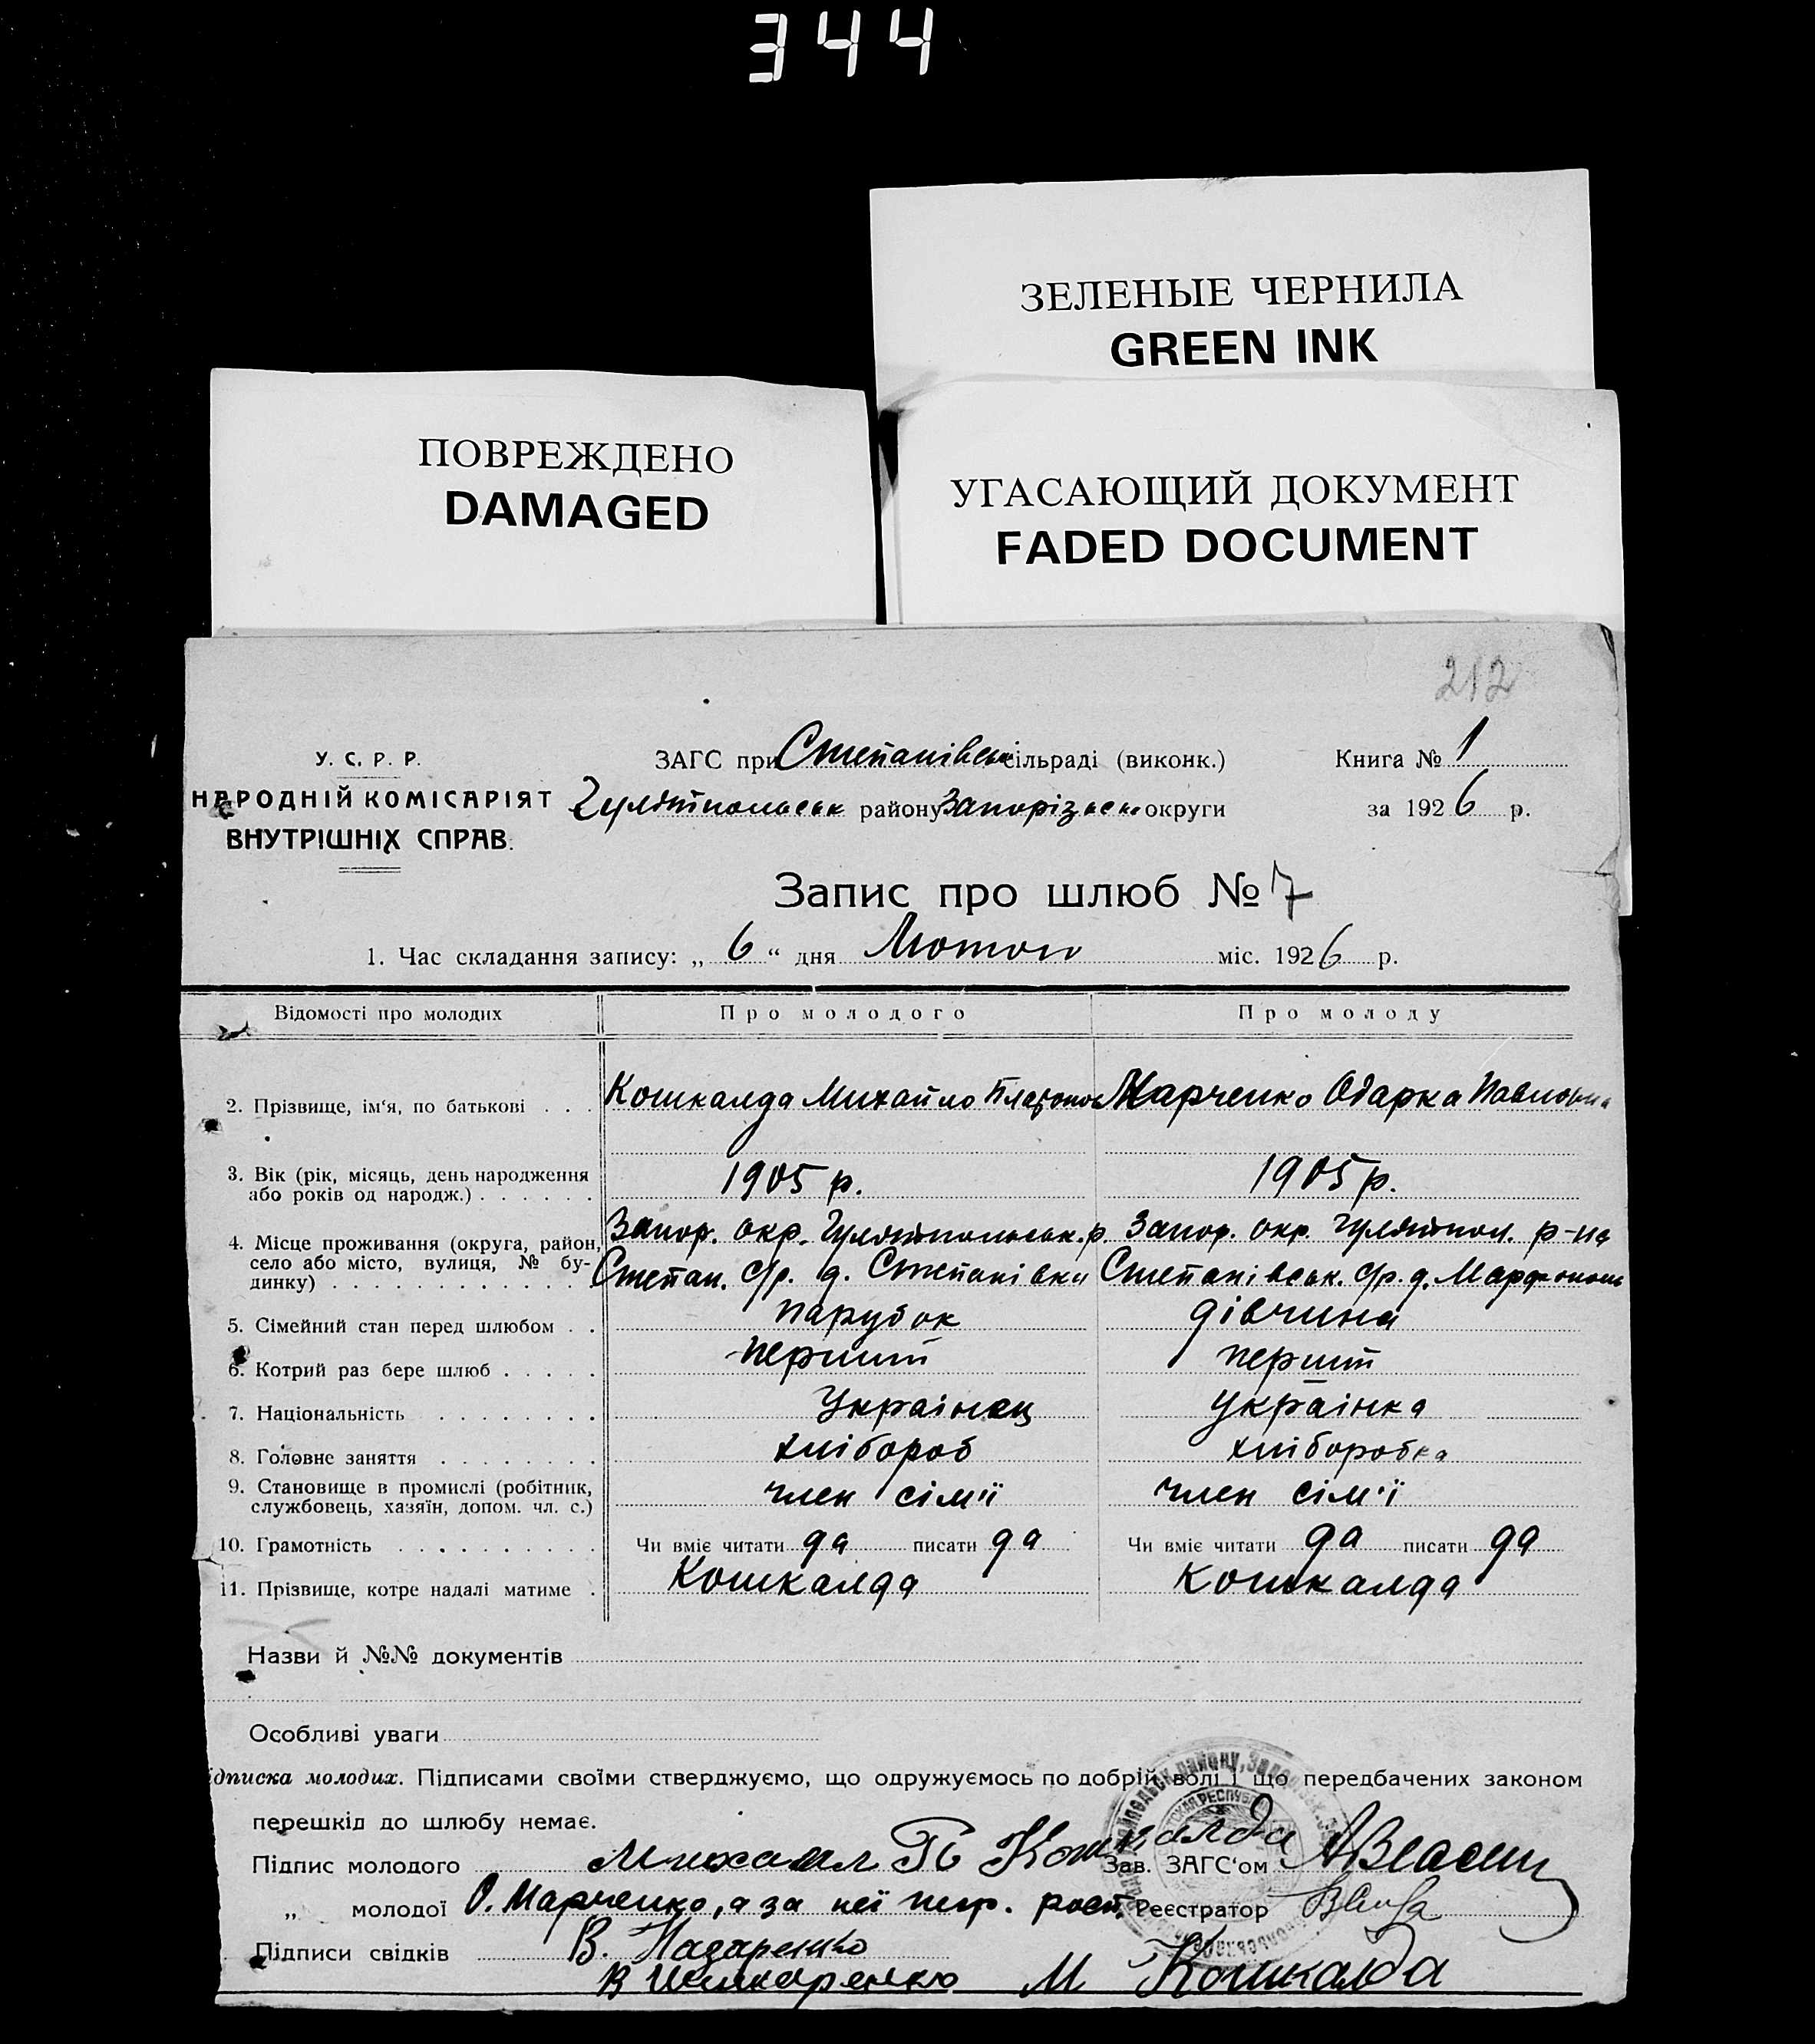 344
ЗЕЛЕНЫЕ ЧЕРНИЛА
GREEN INK
ПОВРЕЖДЕНО
DAMAGED
УГАСАЮЩИЙ ДОКУМЕНТ
FADED DOCUMENT
212
У. С. Р. Р.
НАРОДНІЙ КОМІСАРІЯТ
ВНУТРІШНІХ СПРАВ.
ЗАГС при Степанівськ сільраді (виконк.)
Гуляйпольськ району Запорізьк округи
Книга № 1
за 1926 р.
Запис про шлюб № 7
1. Час складання запису: „ 6 “ дня Лютого міс. 1926 р.
Відомості про молодих Про молодого Про молоду
2. Прізвище, ім‘я, по батькові . . . Кошкалда Михайло Платонов Марченко Одарка Павловна
3. Вік (рік, місяць, день народження
або років од народж.) . . . . . . 1905 р. 1905 р.
4. Місце проживання (округа, район, Запор. окр. Гуляйпольськ. р. Запор. окр. Гуляйпол. р-на
село або місто, вулиця, № бу-
динку) . . . . . . . . . . . . Степан. с/р. д. Степанівки Степанівськ. с/р. д.
5. Сімейний стан перед шлюбом . . парубок дівчина
6. Котрий раз бере шлюб . . . . . перший перший
7. Національність . . . . . . . . Українец українка
8. Головне заняття . . . . . . . . хлібороб хліборобка
9. Становище в промислі (робітник,
службовець, хазяїн, допом. чл. с.) член сім'ї член сім'ї
10. Грамотність . . . . . . . . . . Чи вміє читати да писати да Чи вміє читати да писати да
11. Прізвище, котре надалі матиме . Кошкалда Кошкалда
Назви й №№ документів
Особливі уваги
ідписка молодих. Підписами своїми стверджуємо, що одружуємось по добрій волі і що передбачених законом
перешкід до шлюбу немає.
Підпис молодого Михаил Кошкалда Зав. ЗАГС‘ом
„ молодої О. Марченко, а за неї Реєстратор
Підписи свідків В. Назаренко
В М Кошкалда